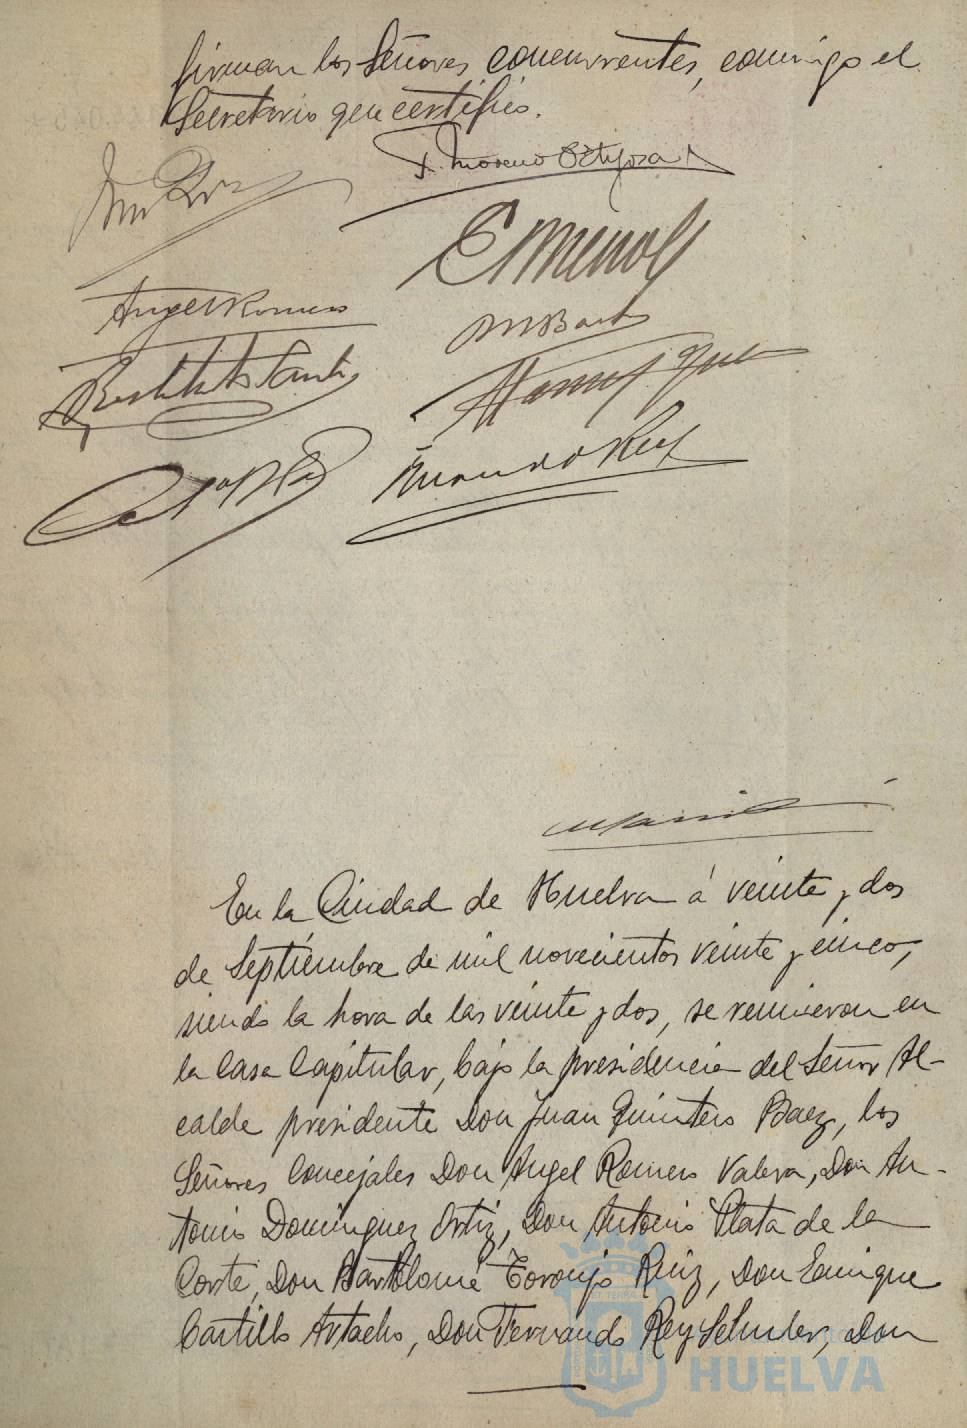 firman los Señores concurrentes, conmigo el
Secretario que certifico.
F. Moreno Ortigosa
Angel Romero
E Menol
M Bart
Fernando Rey
En la Ciudad de Huelva á veinte y dos
de Septiembre de mil novecientos veinte y cinco,
siendo la hora de las veinte y dos, se reunieron en
la Casa Capitular, bajo la presidencia del Señor Al-
calde presidente Don Juan Quintero Baez, los
Señores Concejales Don Angel Romero Valera, Don An-
tonio Dominguez Ortiz, Don Antonio Plata de la
Corte, Don Bartolomé Toronjo Ruiz, Don Enrique
Castillo Artacho, Don Fernando Rey Schuler, Don
HUELVA